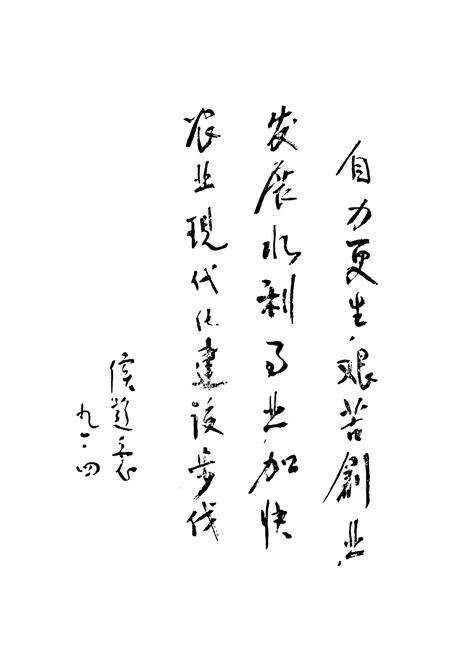 自力更生，艰苦創业，
发展水利事业，加快
农业現代化建设步伐
九二·四